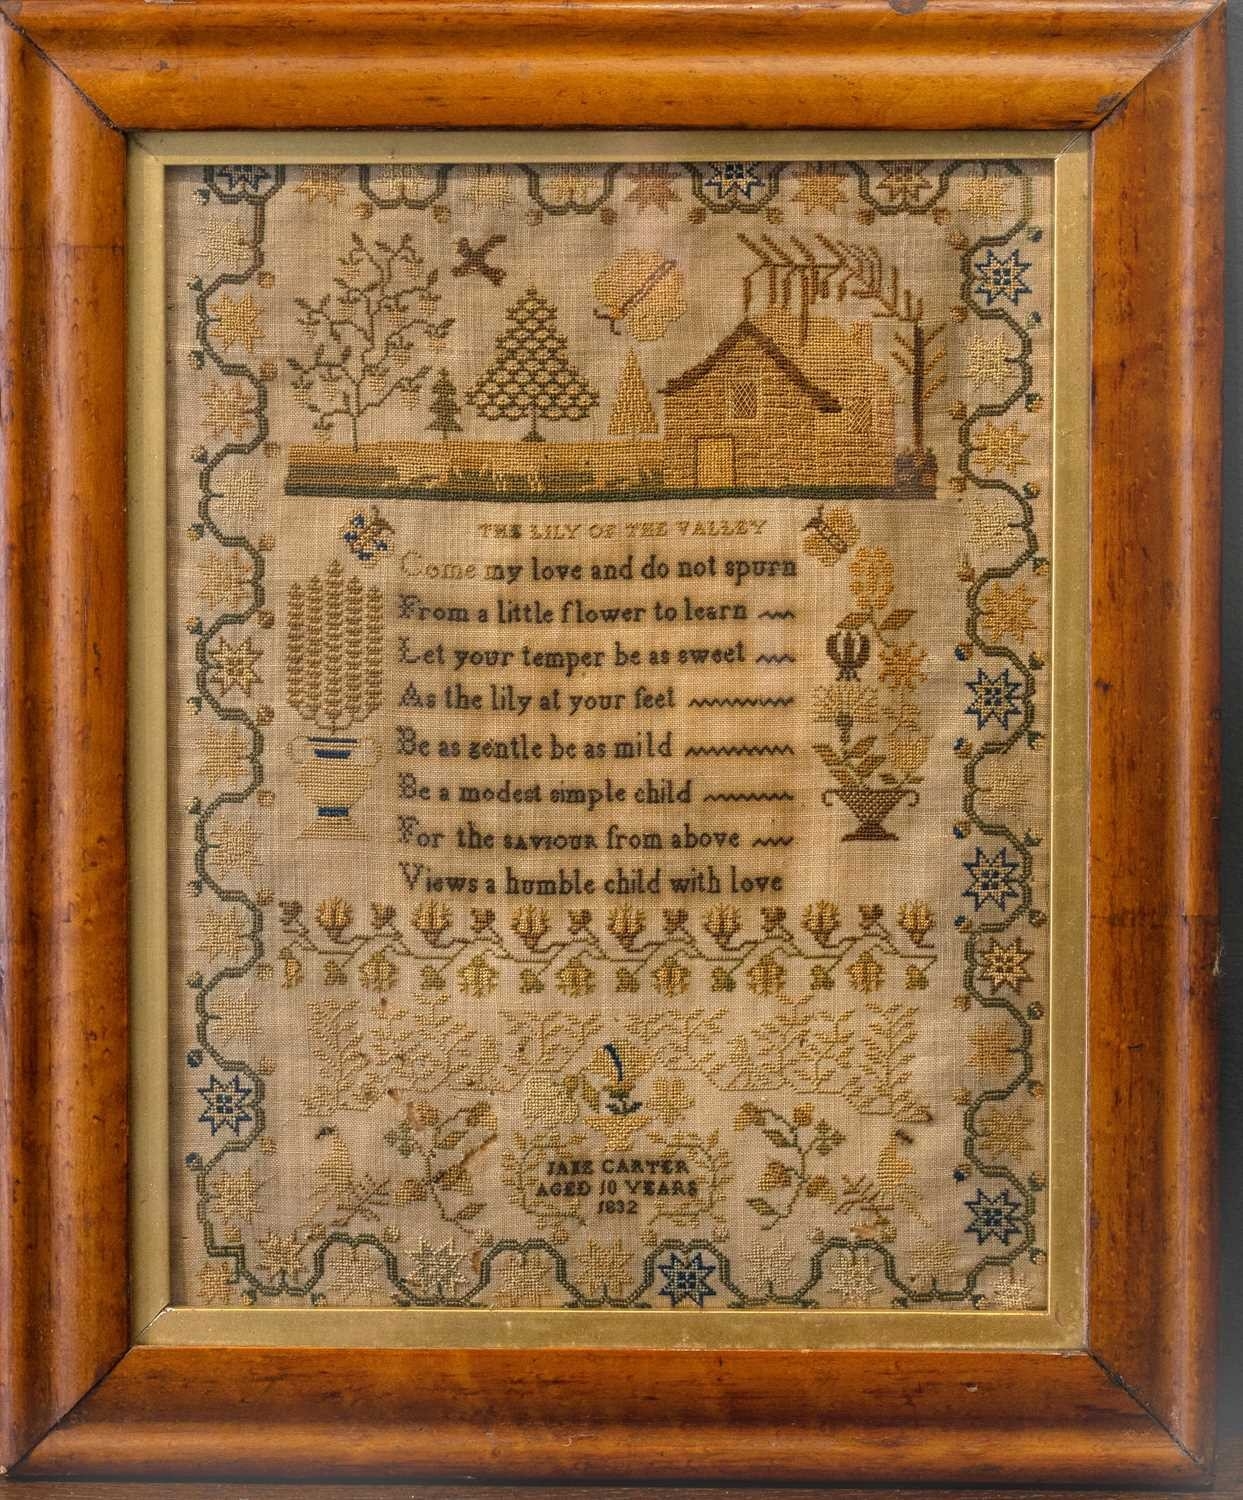 THE LILY OF THE VALLEY
Come my love and do not spurn
From a little flower to learn
Let your temper be as sweet
As the lily at your feet
Be as gentle be as mild
Be a modest simple child
For the SAVIOUR from above
Views a humble child with love
JANE CARTER
AGED 10 YEARS
1832